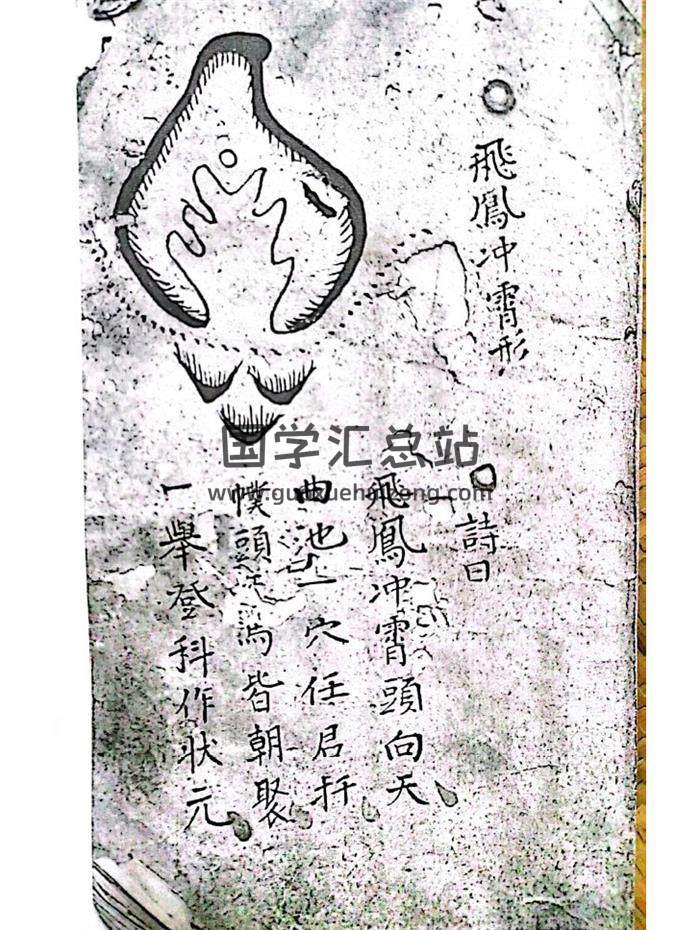 飛鳳冲霄形
詩曰
飛鳳冲霄頭向天
曲池一穴任君扦
幞頭 皆朝聚
一舉登科作狀元
国学汇总站
www.guoxuehuizong.com